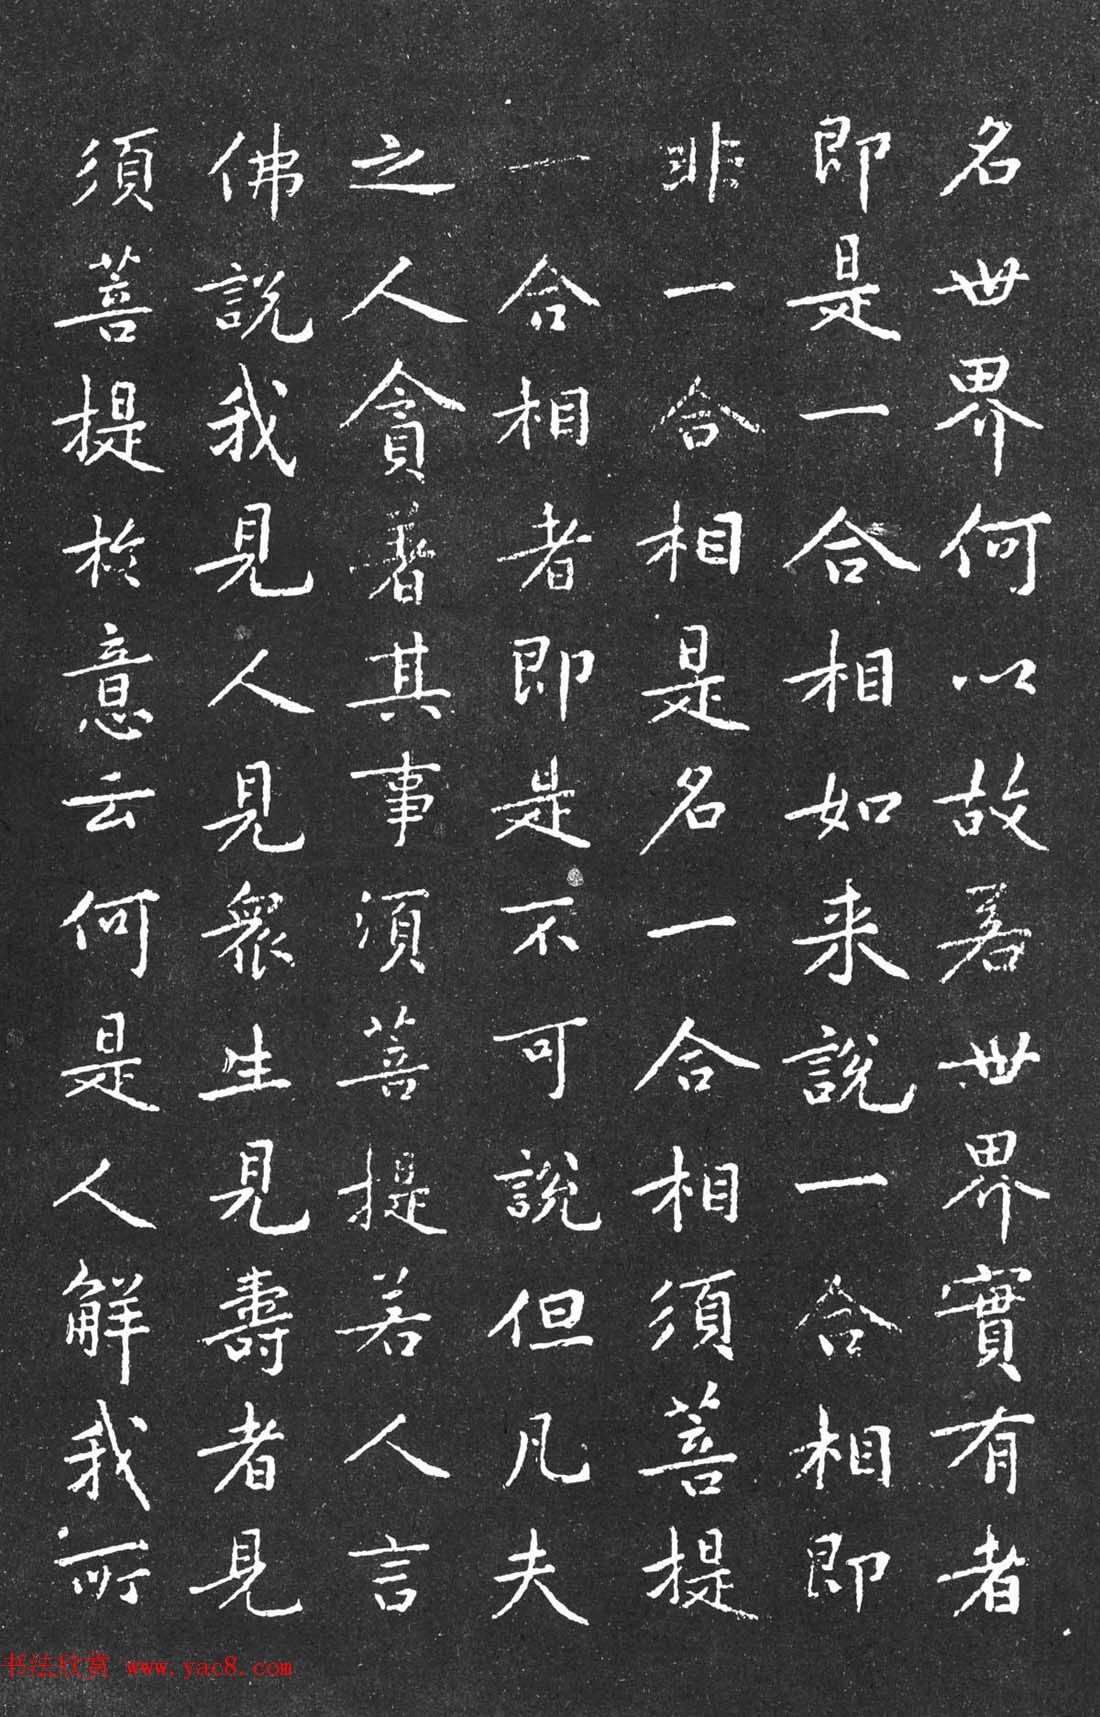 名世界何以故若世界實有者
即是一合相如来説一合相即
非一合相是名一合相須菩提
一合相者即是不可説但凡夫
之人貪著其事須菩提若人言
佛説我見人見衆生見壽者見
須菩提於意云何是人解我所
书法欣赏 www.yac8.com